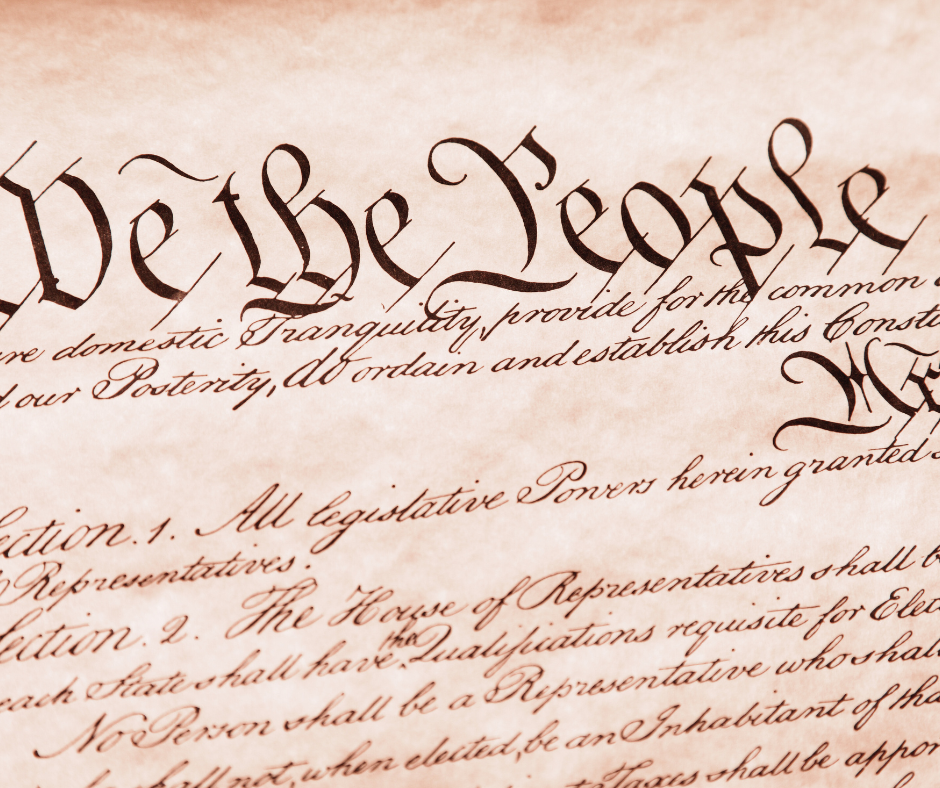 We the People
ure domestic Tranquility, provide for the common
d our Posterity, do ordain and establish this Consti
ection. 1. All legislative Powers herein granted
Representatives.
ection. 2. The House of Representatives shall b
each State shall have the Qualifications requisite for Elec
No Person shall be a Representative who shall
shall not, when elected, be an Inhabitant of tha
Taxes shall be appor